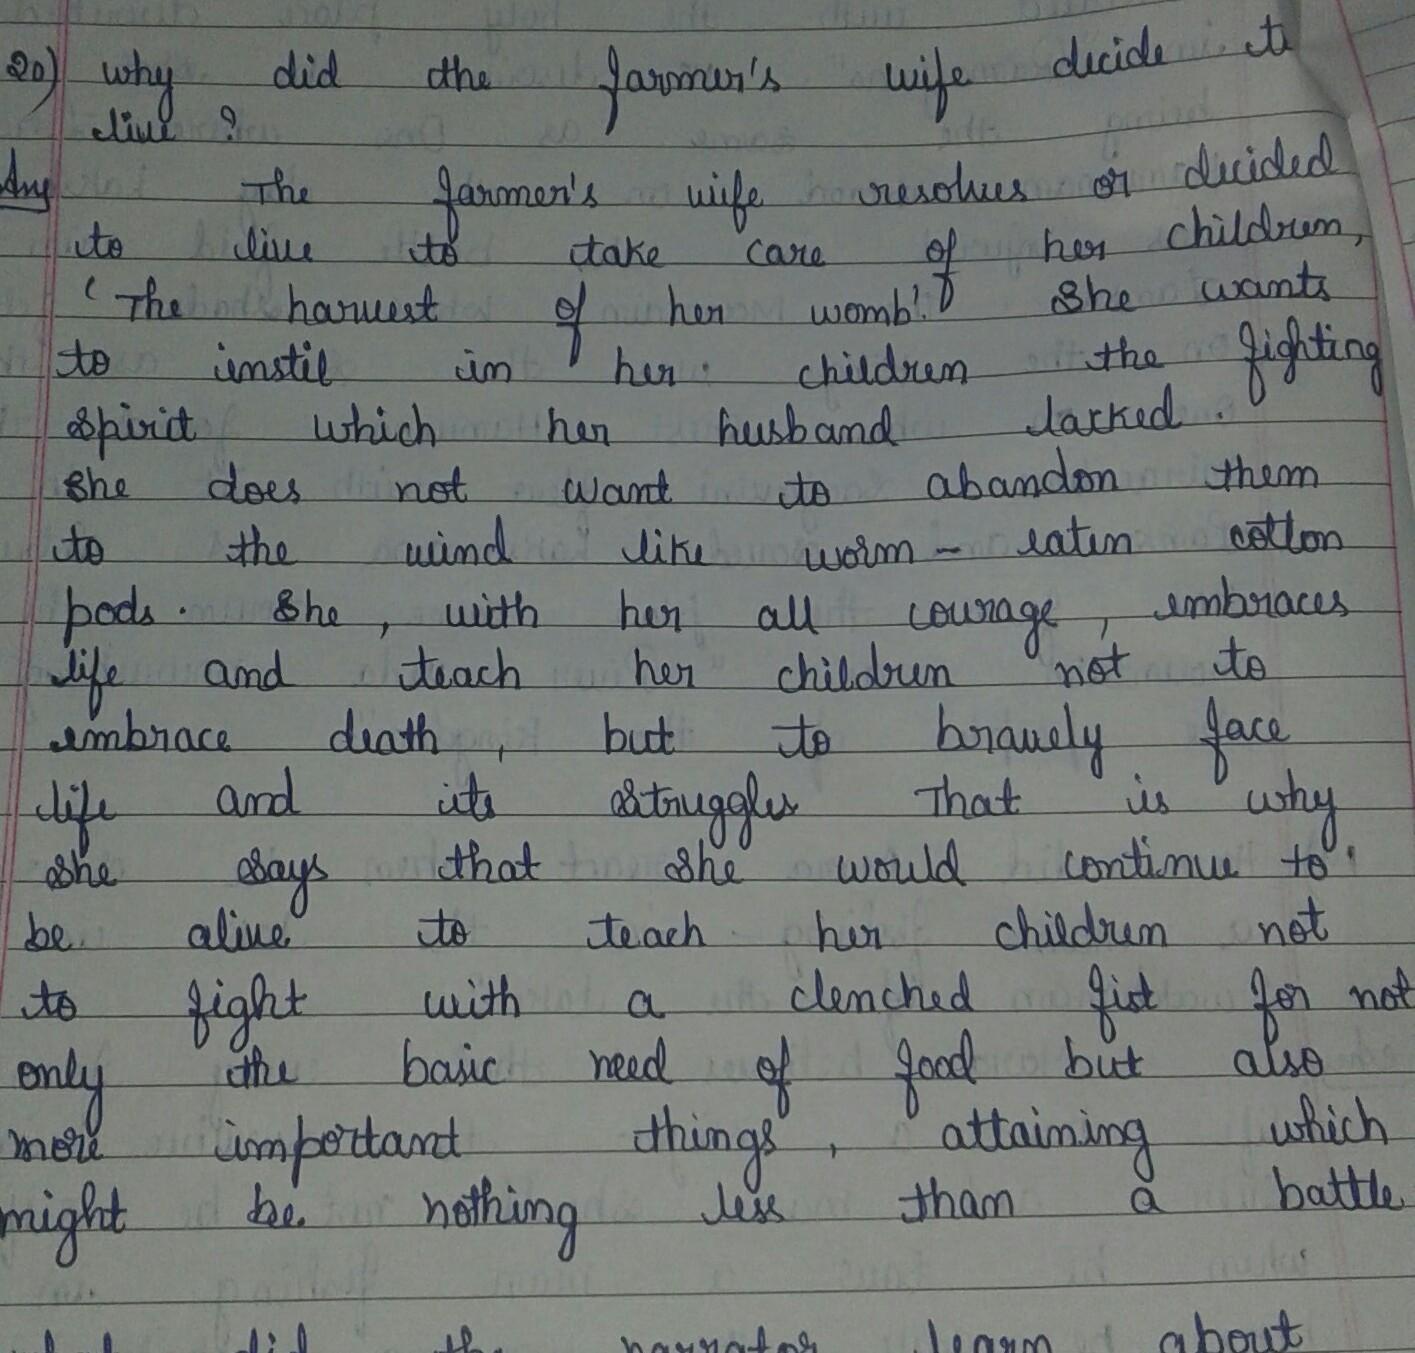 20) why did the farmer's wife decide to
live ?
Ans The farmer's wife resolves or decided
to live to take care of her children,
'The harvest of her womb'. She wants
to instil in her children the fighting
spirit which her husband lacked.
She does not want to abandon them
to the wind like worm - eaten cotton
pods. She, with her all courage, embraces
life and teach her children not to
embrace death, but to bravely face
life and its struggles That is why
she says that she would continue to
be alive to teach her children not
to fight with a clenched fist for not
only the basic need of food but also
more important things, attaining which
might be nothing less than a battle
did the narrator learn about